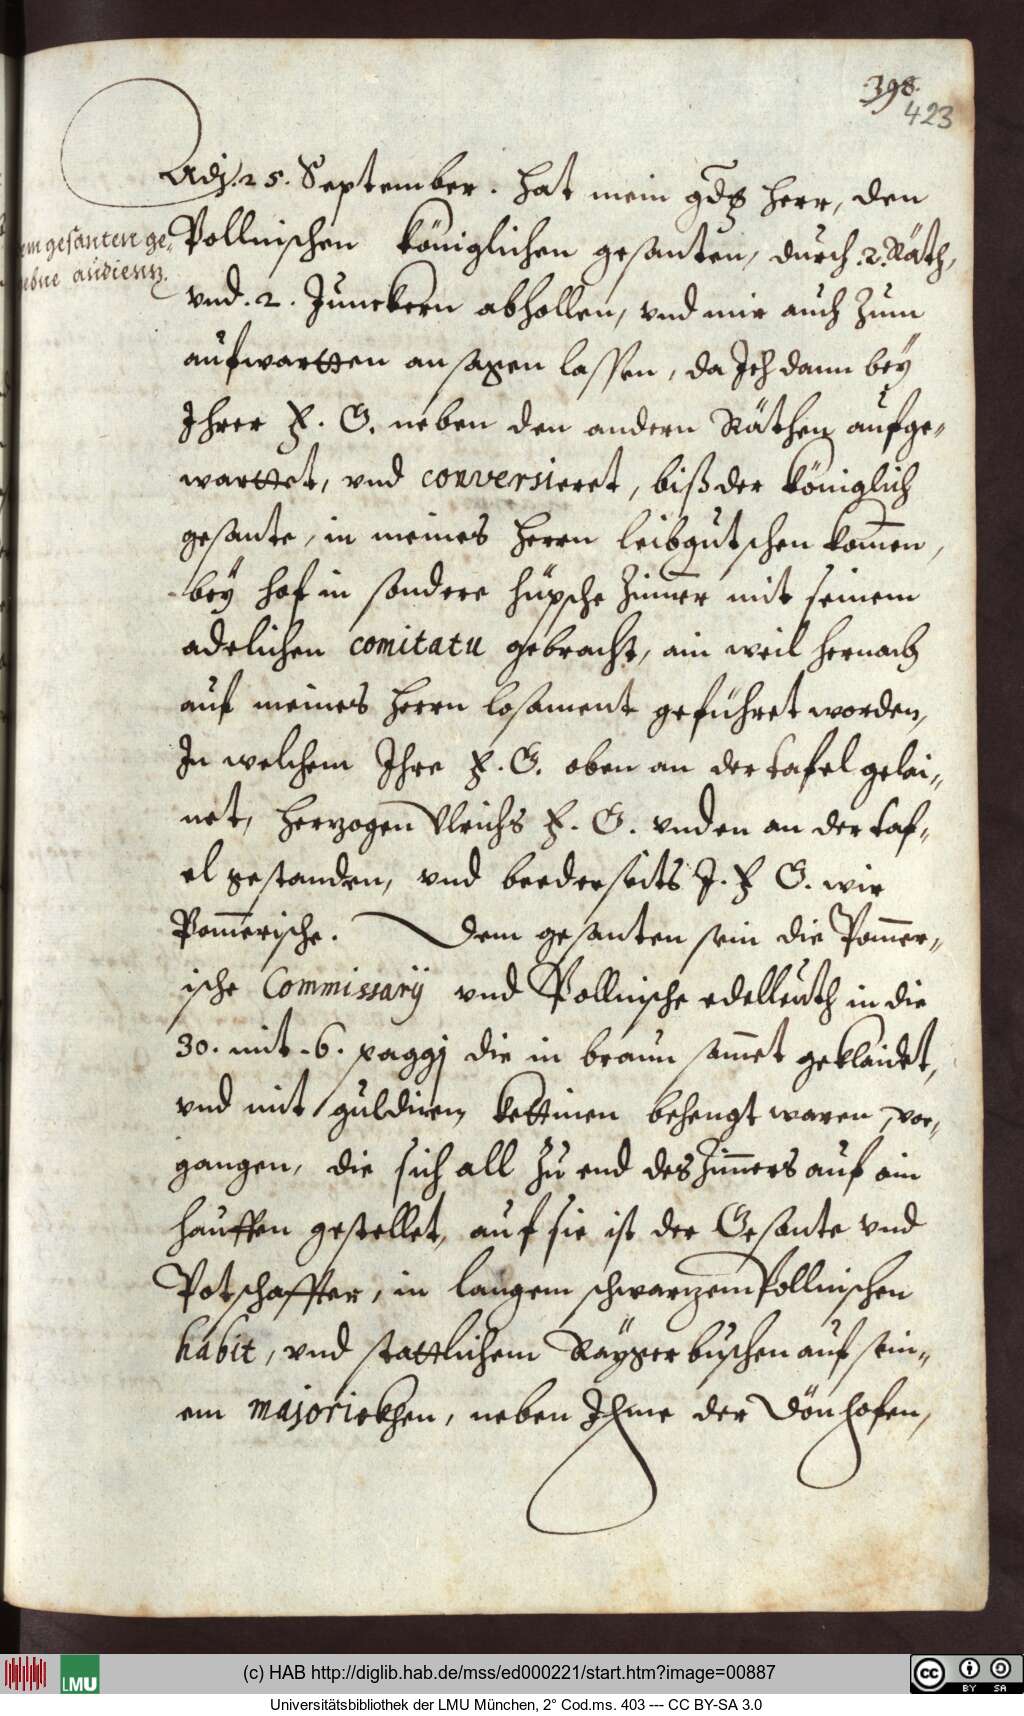 398.
423
Adj. 25. September. hat mein gdg herr, den
em gesanten ge-
ebne audienz.
Pollnischen königlichen gesanten, durch .2. Räth,
vnd .2. Junckern abhollen, vnd mir auch zum
aufwartten ansagen lassen, da Ich dann beÿ
Ihrer F. G. neben den andern Räthen aufge-
warttet, vnd conversieret, biß der königlich
gesante, in meines herrn leibgutschen kom̄en,
beÿ hof in sondere hüpsche Zim̄er mit seinem
adelichen comitatu gebracht, ain weil hernach
auf meines herrn losament geführet worden,
In welchem Ihre F. G. oben an der tafel gelai-
net, herzogen Vlrichs F. G. vnden an der taf-
el gestanden, vnd beederseits J. F G. wir
Pom̄erische. Dem gesanten sein die Pom̄er-
ische Commissarÿ vnd Pollnische edelleuth in die
30. mit .6. paggj die in braun sam̄et geklaidet,
vnd mit guldinen kettinen behengt waren, vor-
gangen, die sich all zu end des Zim̄ers auf ain
hauffen gestellet, auf sie ist der Gesante vnd
Potschaffter, in langem schwarzem Pollnischen
habit, vnd stattlichem Raÿger buschen auf sein-
em majerickhen, neben Ihme der Dönhofen,
(c) HAB http://diglib.hab.de/mss/ed000221/start.htm?image=00887
LMU
cc BY SA
Universitätsbibliothek der LMU München, 2° Cod.ms. 403 --- CC BY-SA 3.0